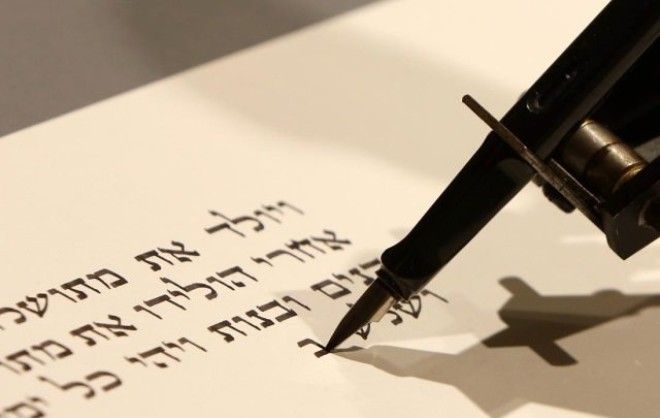 ויולד את מתושל
אחרי הולידו את מתו
נים ובנות ויהי כל ימ